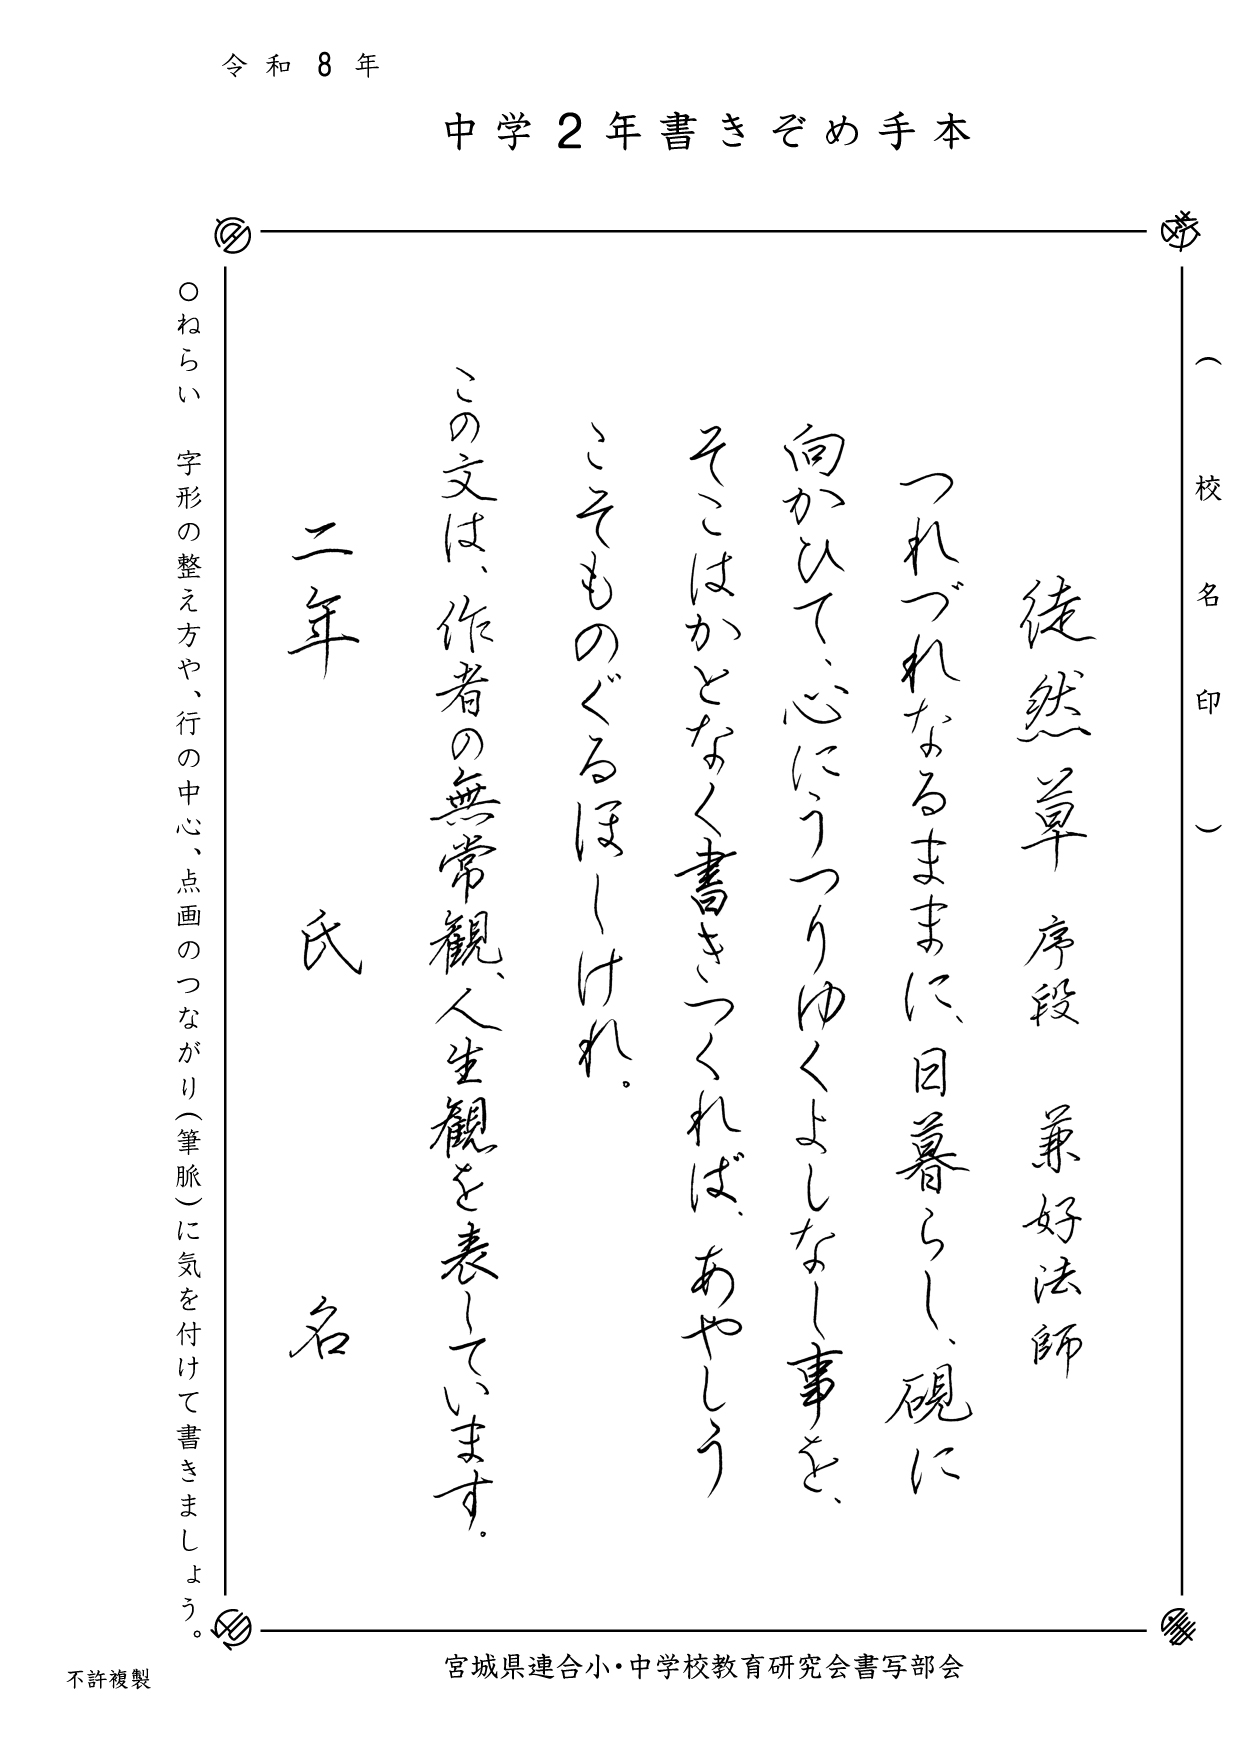 令和8年
中学2年書きぞめ手本
（校名印）
徒然草 序段 兼好法師
つれづれなるままに、日暮らし、硯に
向かひて、心にうつりゆくよしなし事を、
そこはかとなく書きつくれば、あやしう
こそものぐるほしけれ。
この文は、作者の無常観、人生観を表しています。
二年 氏名
○ねらい 字形の整え方や、行の中心、点画のつながり(筆脈)に気を付けて書きましょう。
宮城県連合小・中学校教育研究会書写部会
不許複製